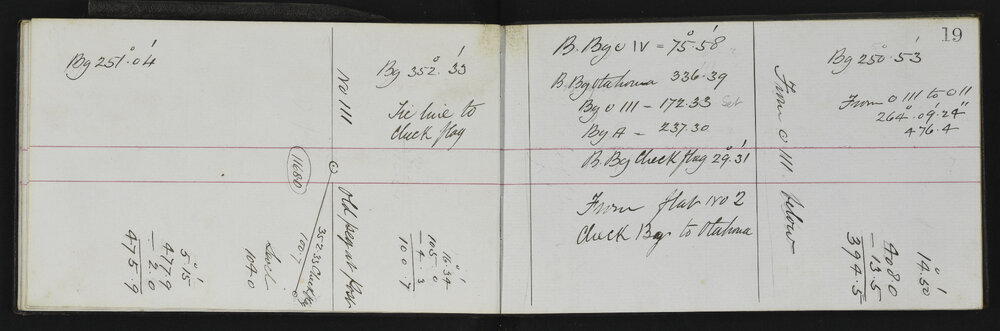 Bg 251°.04'
Bg 352°.33'
No 111
Tie line to
Check flag
11680
Old peg at
352.33 Check flag
100.7
104.0
16°.34'
105.0
- 4.3
100.7
5°.15'
477.9
- 2.0
475.9
19
B. Bg O IV = 75°.58'
B. Bg Otahoma 336.39
Bg O III - 172.33
Bg A - 237.30
B. Bg Check flag 29°.31'
From flat No 2
Check Bg to Otahoma
From O III. below
Bg 250°.53'
From O III to O II
264°.09'.24"
476.4
14°.50'
408.0
- 13.5
394.5